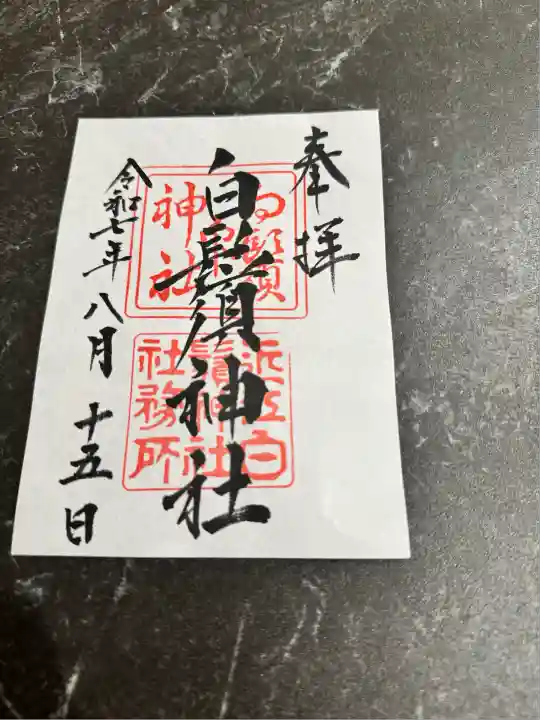 奉拝
白鬚神社
令和七年八月十五日
近江白
鬚神社
社務所